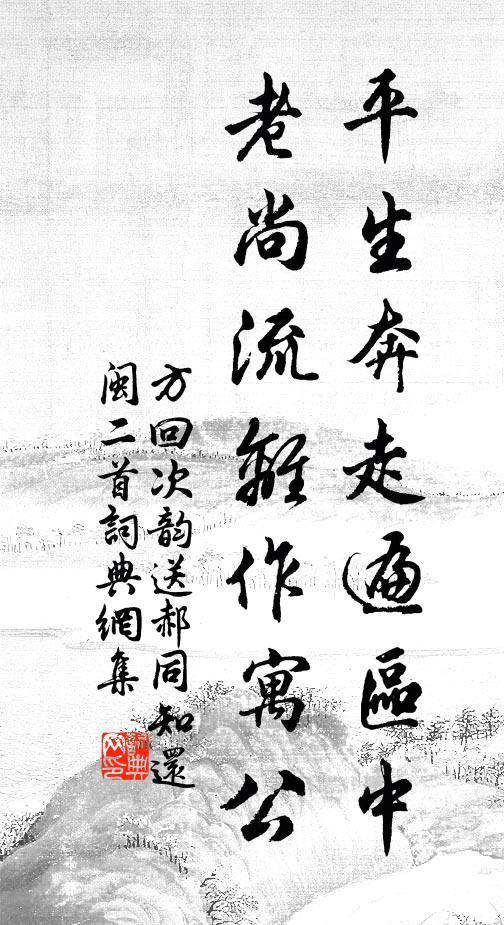 平生奔走遍區中
老尚流離作寓公
方回次韵送郝同知還
閩二首詞典網集